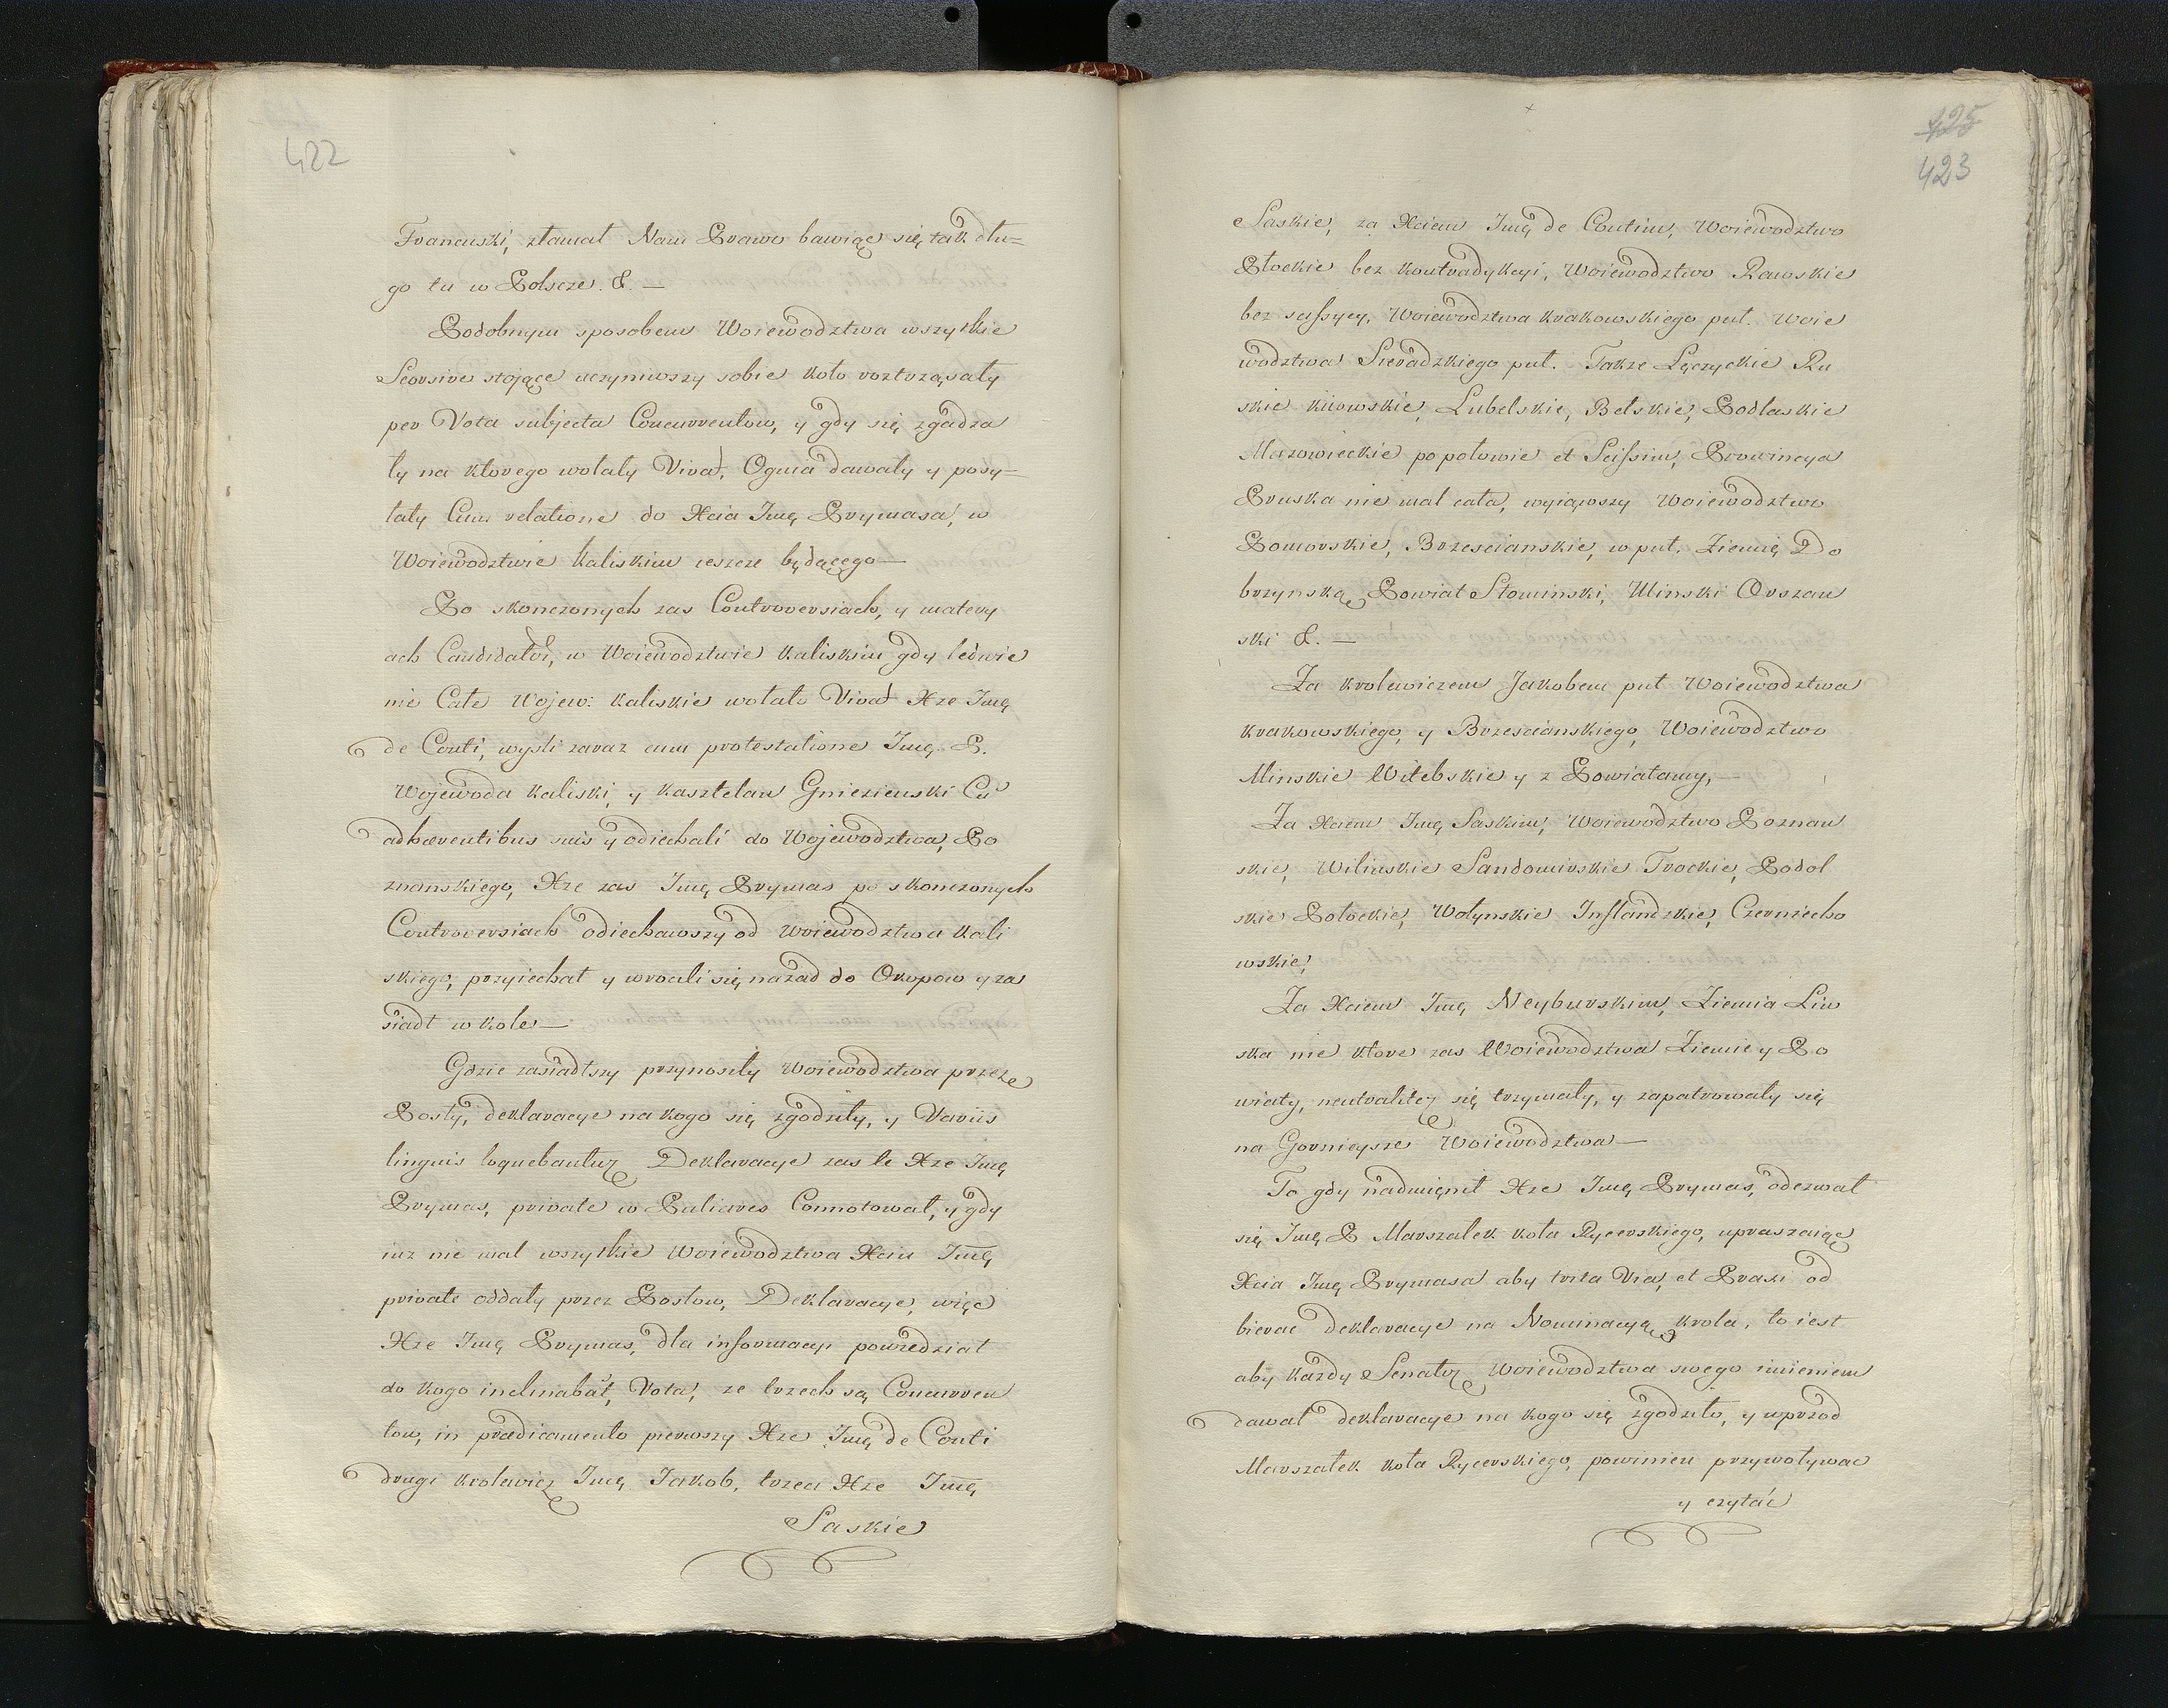 422
Francuski, złamał Nam Prawo bawiąc się tak dłu=
go tu w Polscze. &. —
Podobnym sposobem Woiewodztwa wszytkie
Seorsive stojące uczyniwszy sobie koło roztrząsały
per Vota subjecta Concurrentow, y gdy się zgadza
ły na ktorego wołały Vivat, Ognia dawały y posy=
łały Cum relatione do Xcia Jmę Prymasa, w
Woiewodztwie Kaliskim ieszcze będącego —
Po skonczonych zas Controversiach, y matery
ach Candidatӯ, w Woiewodztwie Kaliskim gdy ledwie
nie Całe Wojew: Kaliskie wołało Vivat Xze Jmę
de Conti, wyśli zaraz cum protestatione Jmę P.
Wojewoda Kaliski, y Kasztelan Gniezienski Cu
adhærentibus suis y odiechali do Wojewodztwa, Po
znanskiego, Xze zas Jmę Prymas po skonczonych
Controversiach odiechawszy od Woiewodztwa Kali
skiego, przyiechał y wrocili się nazad do Okopow y za
siadł w kole —
Gdzie zasiadłszy przynosiły Woiewodztwa przeze
Posły, deklaracye na kogo się zgodziły, y Variis
linguis loquebantur Deklaracye zas te Xze Jmę
Prymas, private w Puliares Connotował, y gdy
iuz nie mal wszytkie Woiewodztwa Xciu Jmę
private oddały przez Posłow, Deklaracye, więc
Xze Jmę Prymas, dla informacyi powiedział
do kogo inclinabāt, Vota, ze trzech są Concurren
tow, in prædicamento pierwszy Xze Jmę de Conti
drugi krolewicz Jmę Jakob, trzeci Xze Jmę
Saskie
425
423
Saskie, za Xciem Jmę de Contim, Woiewodztwo
Płockie bez kontradykcyi, Woiewodztwo Rawskie
bez scissyey, Woiewodztwa Krakowskiego puł. Woie
wodztwa Sieradzkiego puł. Takze Łęczyckie Ru
skie Kiiowskie, Lubelskie, Bełskie, Podlaskie
Mazowieckie po połowie et Scissim, Prowincya
Pruska nie mal cała, wyiąwszy Woiewodztwo
Pomorskie, Brzescianskie, w puł. Ziemię Do
brzynską, Powiat Słonimski, Minski Orszan
ski &. —
Za krolewiczem Jakobem puł Woiewodztwa
Krakowskiego, y Brzescianskiego, Woiewodztwo
Minskie Witebskie y z Powiatamy, —
Za Xciem Jmę Saskim, Woiewodztwo Poznan
skie, Wilinskie Sandomirskie Trockie, Podol
skie Połockie, Wołynskie Inflandzkie, Czerniecho
wskie,
Za Xciem Jmę Neyburskim, Ziemia Liw
ska nie ktore zas Woiewodztwa Ziemie y Po
wiaty, neutralitej się trzymały, y zapatrowały się
na Gornieysze Woiewodztwa —
To gdy nadmięnił Xze Jmę Prymas, odezwał
się Jmę P Marszałek koła Rycerskiego, upraszaiąc
Xcia Jmę Prymasa aby trita Via, et Praxi od
bierac deklaracye na Nominacyą krola, to iest
aby kazdy Senator Woiewodztwa swego imieniem
dawał deklaracye na kogo się zgodziło, y wprzod
Marszałek koła Rycerskiego, powinien przywoływac
y czytać